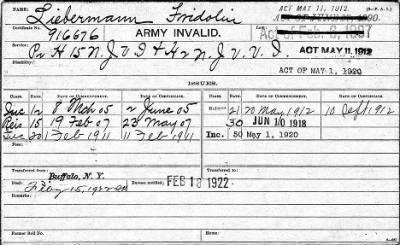 Name, Liebermann Fridolin ACT MAY 11, 1912.
Certificate No. 916676 ARMY INVALID.
Service, Co H 15 N.J. V I + H 2 N.J. V. V. I. ACT MAY 11, 1912
ACT OF MAY 1, 1920
ISSUES.
CLASS. RATE. DATE OF COMMENCEMENT. DATE OF CERTIFICATE. CLASS. RATE. DATE OF COMMENCEMENT. DATE OF CERTIFICATE.
12 8 Mch 05 2 June 05 21 20 May 1912 10 Sept 1912
Reis 15 19 Feb 07 23 May 07 30 JUN 10 1918
20 1 Feb 1911 11 Feb 1911 Inc. 50 May 1, 1920
Transferred from
Buffalo, N. Y.
Died Feby 15, 1922 Bureau notified FEB 18 1922
Remarks:
Transferred to
Former Roll No. Home